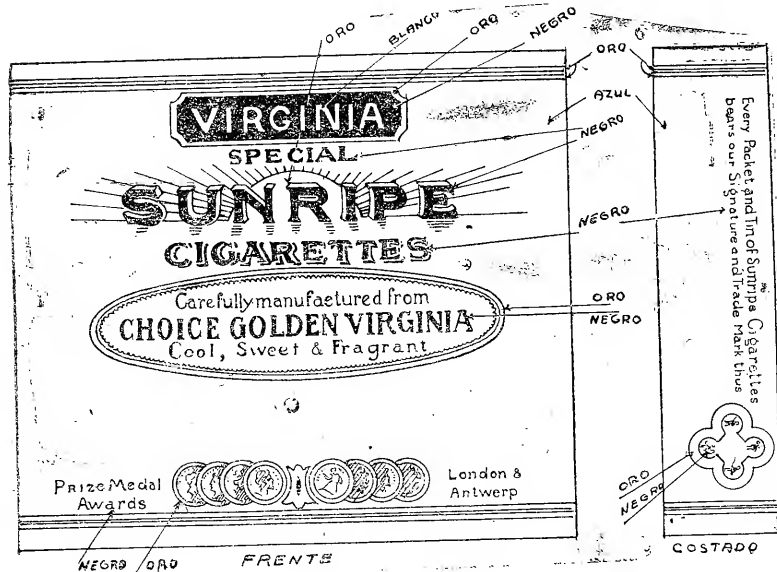 ORO
BLANCO
ORO
NEGRO
ORO
AZUL
NEGRO
VIRGINIA
SPECIAL
SUNRIPE
CIGARETTES
NEGRO
Carefully manufactured from
CHOICE GOLDEN VIRGINIA
Cool, Sweet & Fragrant
ORO
NEGRO
Prize Medal
Awards
London &
Antwerp
NEGRO ORO
FRENTE
Every Packet and Tin of Sunripe Cigarettes
bears our Signature and Trade Mark thus
ORO
NEGRO
COSTADO